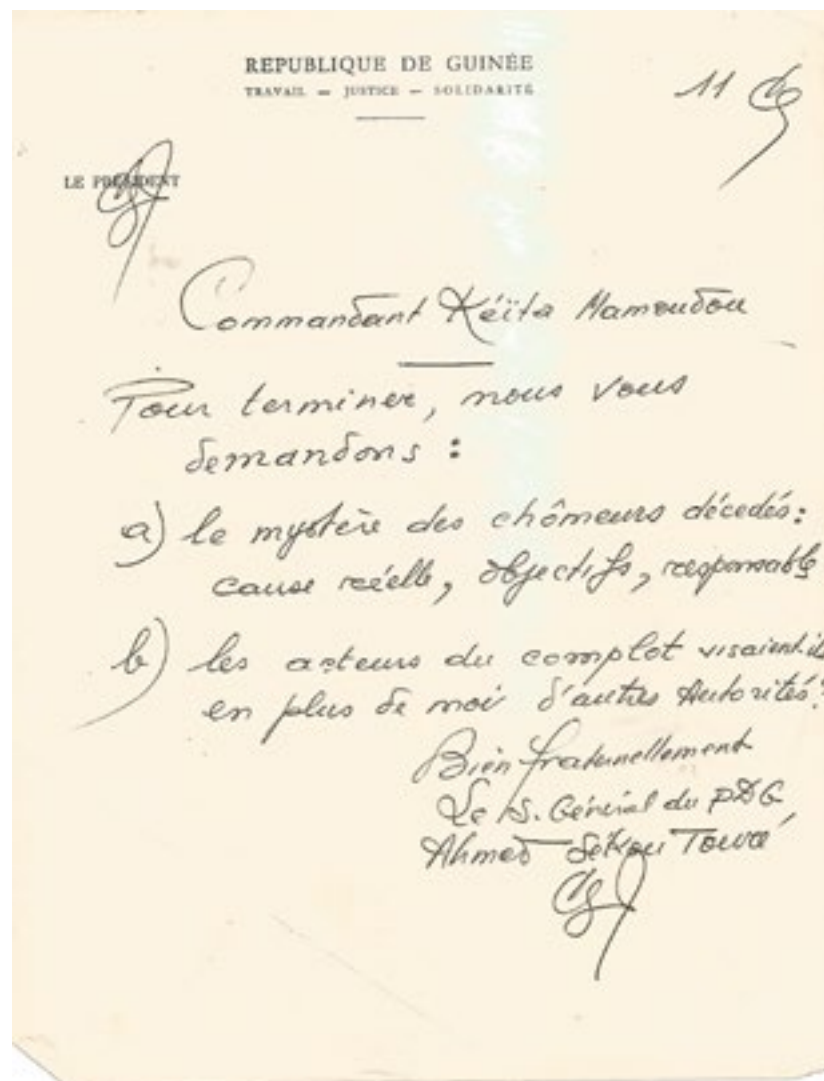 REPUBLIQUE DE GUINÉE
TRAVAIL - JUSTICE - SOLIDARITÉ
11
LE PRÉSIDENT
Commandant Kéïta Mamoudou
Pour terminer, nous vous
demandons :
a) le mystère des chômeurs décedés:
cause réelle, objectifs, responsable
b) les acteurs du complot visaient-ils
en plus de moi d'autres Autorités?
Bien fraternellement
Le S. Général du PDG
Ahmed Sékou Touré